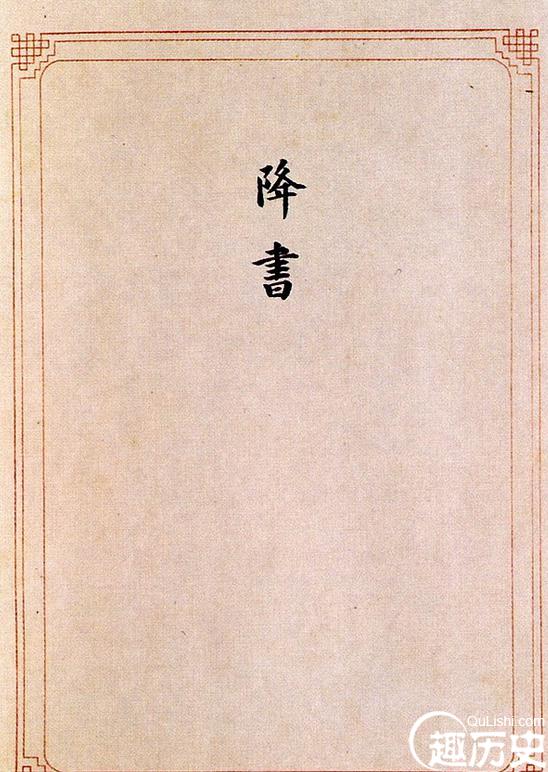 降書
QuLishi.com
趣历史